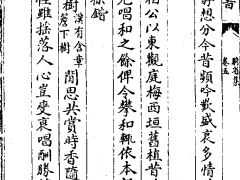 騎省集
卷五
靜想分今昔頻吟歎盛衰多情
相公以東觀庭梅西垣舊植昔
兄唱和之餘俾令攀和輒依本
樹漢有含章
簷下樹閒思共賞時香隨
徑雖搖落人心豈變衰唱酬勝